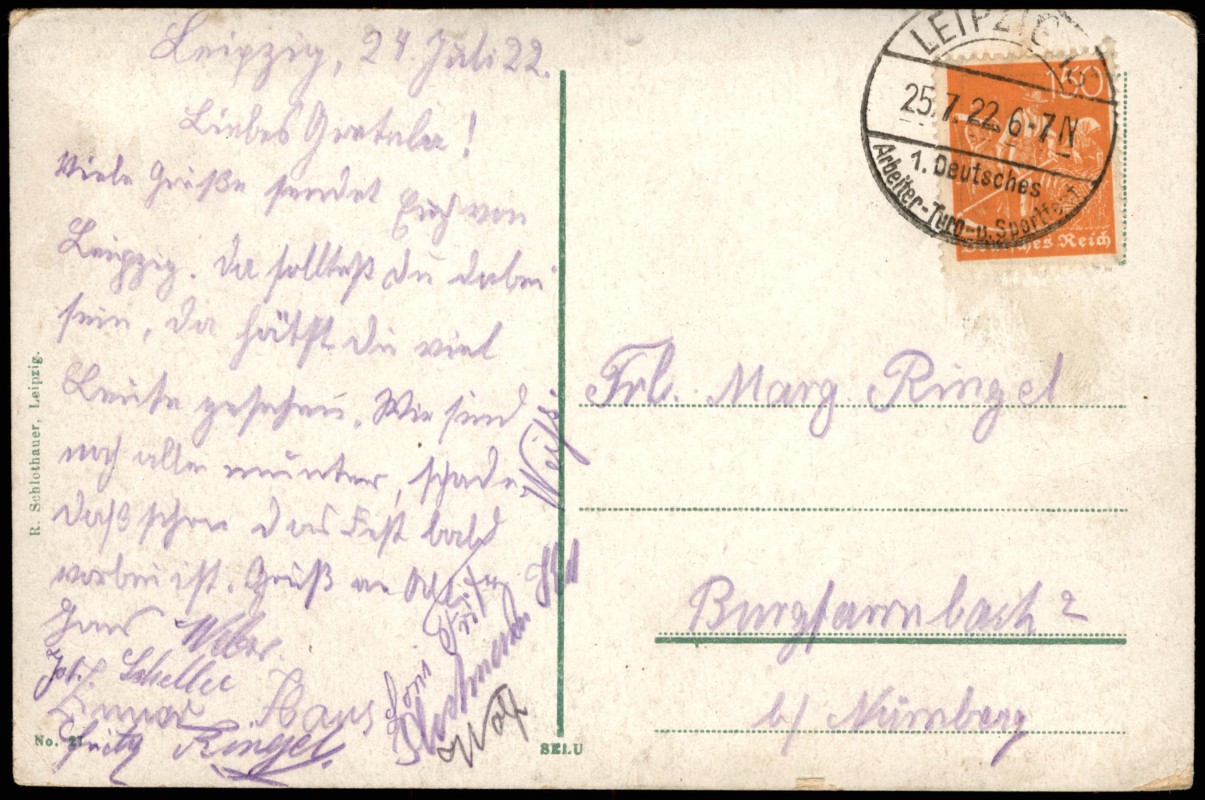 Leipzig, 24. Juli 22.
Liebes Gretela!
Viele Grüße sendet Euch von
Leipzig. Da solltest du dabei
sein, da hätst du viel
Leute gesehen. Wir sind
noch alle munter, schade
daß schon das Fest bald
vorbei ist. Gruß an
Hans Weber.
Scheller
Hans
Fritz Ringel.
Wolf
R. Schlothauer, Leipzig.
No. 27
SELU
LEIPZIG
25.7.22.6-7N
1. Deutsches
Arbeiter-Turn-u. Sportfest
150
Deutsches Reich
Frl. Marg Ringel
Burgfarrnbach 2
b/ Nürnberg